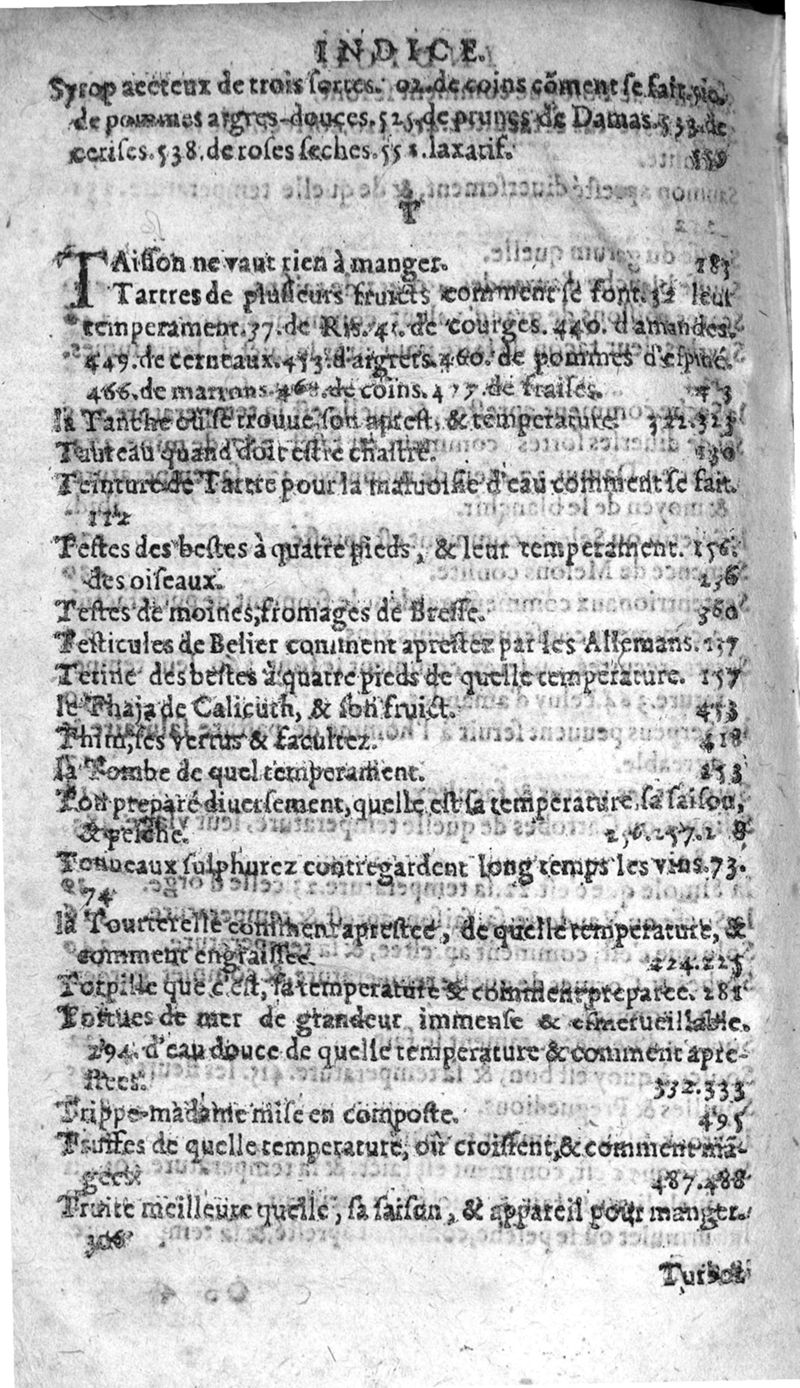 INDICE.
Syrop aceteux de trois sortes. 02. de coins cõment se fait.510.
de pommes aigres-douces.525.de prunes de Damas.533.de
cerises.538.de roses seches.551.laxatif. 559
T
TAisson ne vaut rien à manger. 183
Tartres de plusieurs fruicts comment se font.32 leur
temperament.37.de Ris.41.de courges.440. d'amandes.
449.de cerneaux.453.d'aigrets.460. de pommes d'espine.
466.de marrons.468.de coins.477.de fraises.
la Tanche où se trouue, son aprest, & temperature. 322.323
Taureau quand doit estre chastré. 130
Teinture de Tartre pour la maluoisie d'eau comment se fait.
112
Testes des bestes à quatre pieds, & leur temperament. 156.
des oiseaux. 236
Testes de moines, fromages de Bresse. 360
Testicules de Belier comment aprestez par les Allemans.157
Tetine des bestes à quatre pieds de quelle temperature. 157
le Thaja de Calicuth, & son fruict. 453
Thim, ses vertus & facultez. 418
la Tombe de quel temperament. 253
Ton preparé diuersement, quelle est sa temperature, sa saison,
& pesche. 256.257.2 8
Tonneaux sulphurez contregardent long temps les vins.73.
74
la Tourterelle comment aprestee, de quelle temperature, &
comment engraissee. 224.225
Torpille que c'est, sa temperature & comment preparee. 281
Tortues de mer de grandeur immense & esmerueillable.
294. d'eau douce de quelle temperature & comment apre-
stees. 332.333
Trippe-madame mise en composte. 495
Truffes de quelle temperature, où croissent, & comment mã-
gees 487.488
Truite meilleure quelle, sa saison, & appareil pour manger.
306
Turbot